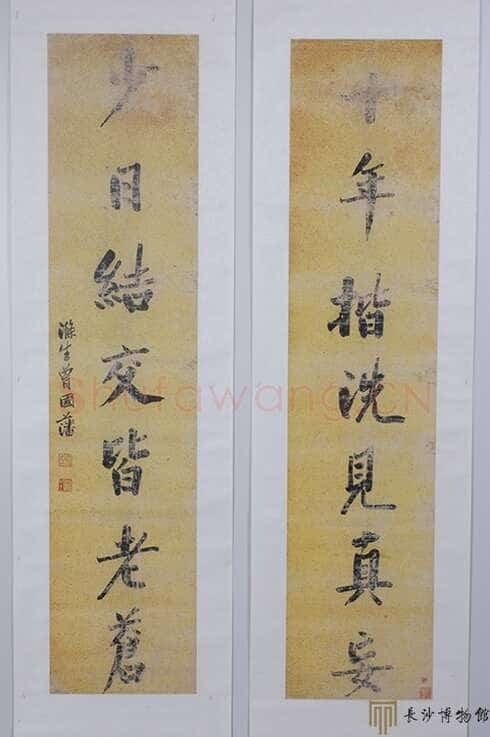 十年揩洗見真妄
少日結交皆老蒼
滌生曾國藩
Shufawang.CN
長沙博物館